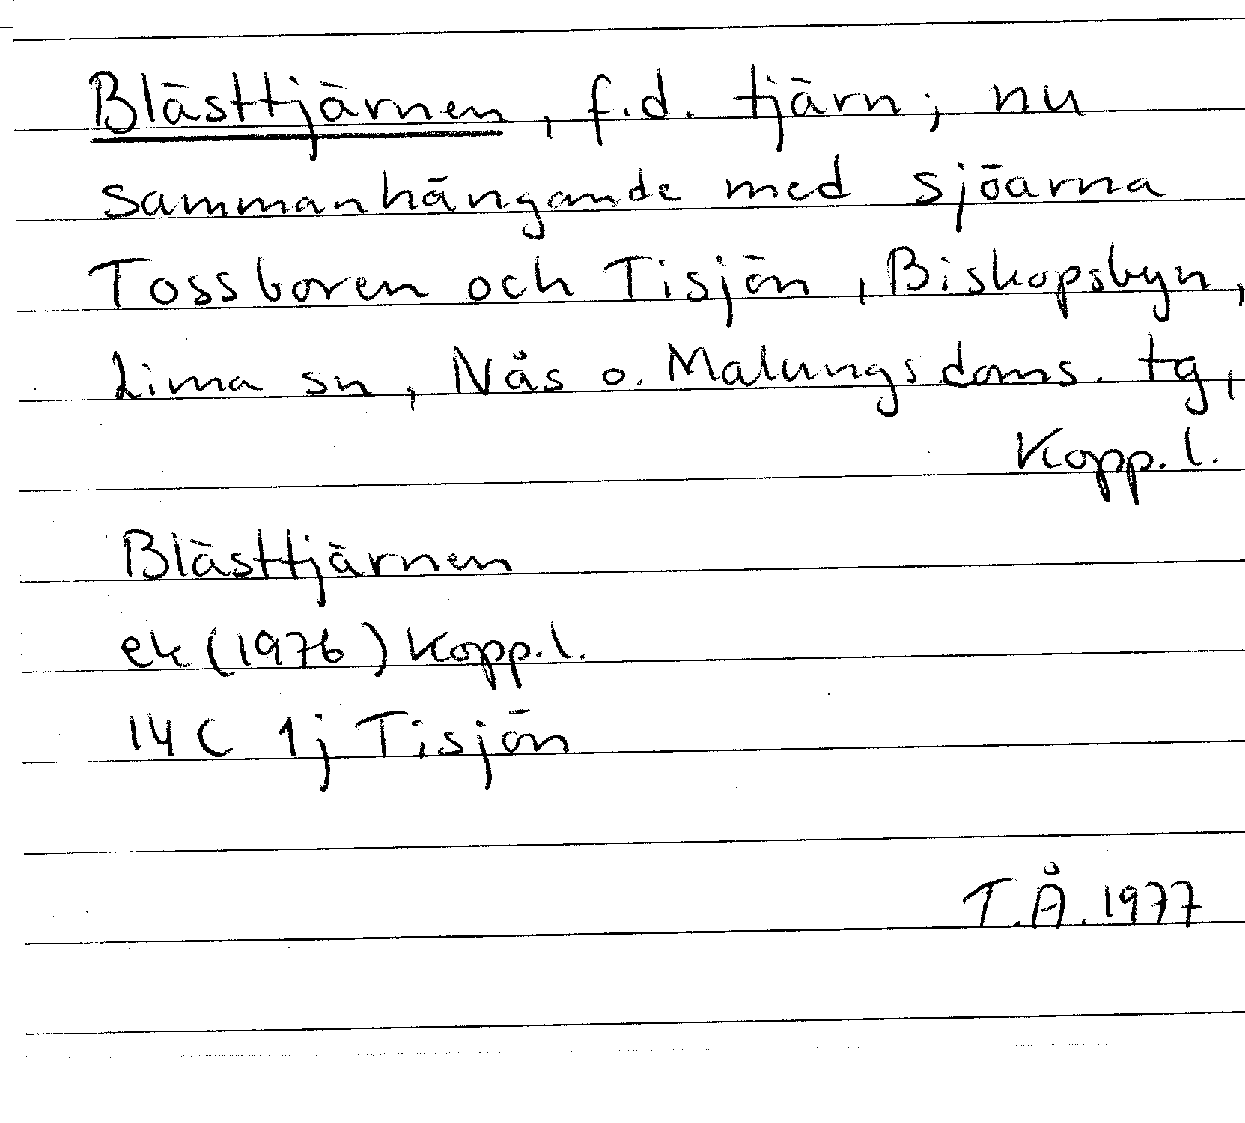 Blästtjärnen, f.d. tjärn; nu
sammanhängande med sjöarna
Tossboren och Tisjön, Biskopsbyn,
Lima sn, Nås o. Malungs doms. tg,
Kopp. l.
Blästtjärnen
ek (1976) Kopp.l.
14 C 1j Tisjön
T.Å. 1977